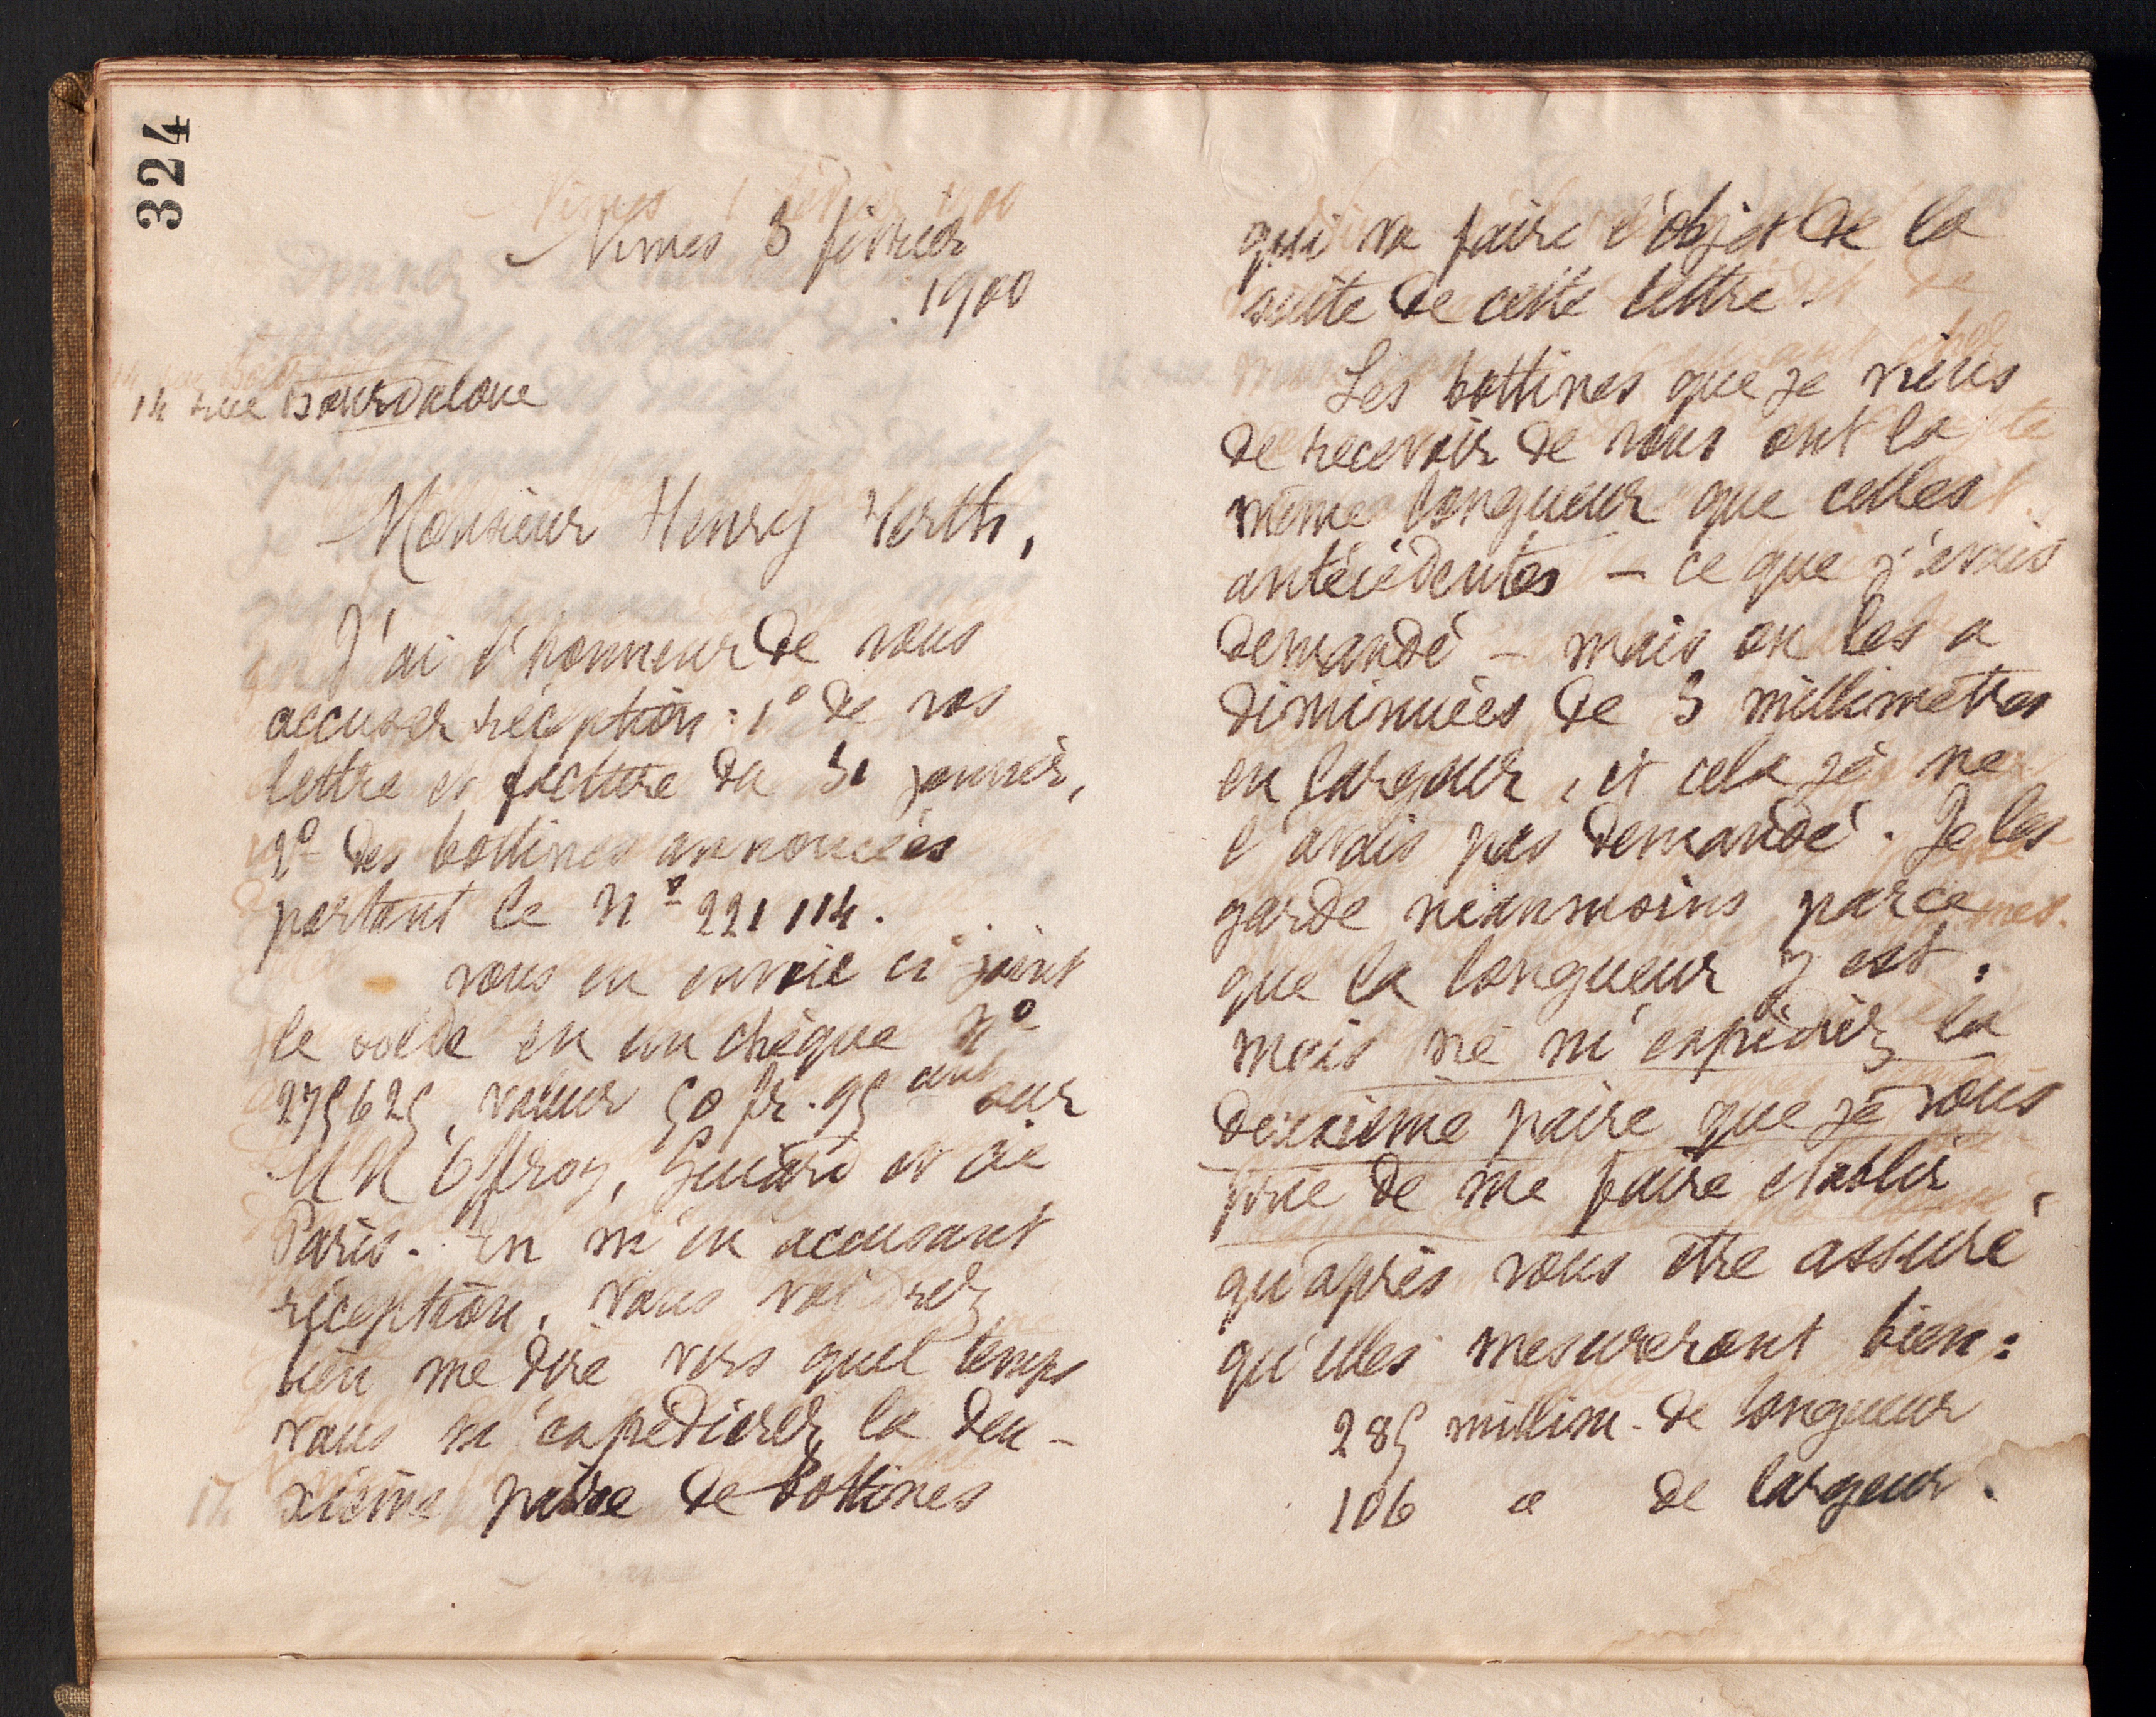 324
Nimes 3 février
1900
14 rue Bourdaloue
Monsieur Henry Yerth,
J'ai l'honneur de vous
accuser réception : 1° de vos
lettre et facture du 31 janvier,
2° des bottines annoncées
portant le N° 221 114.
vous en envoie ci joint
le solde en un chèque N°
275625, valeur 50 fr. 95 sur
MM Offroy, Guiard et Cie
Paris. En m'en accusant
réception, vous voudrez
bien me dire vers quel temps
vous m'expédierez la deu-
xième paire de bottines
qui va faire l'objet de la
suite de cette lettre.
Les bottines que je viens
de recevoir de vous ont la
même longueur que celles
antécédentes — ce que j'avais
demandé — mais on les a
diminuées de 3 millimètres
en largeur, et cela je ne
l'avais pas demandé. Je les
garde néanmoins parce
que la longueur y est.
mais ne m'expédiez la
deuxième paire que je vous
prie de me faire établir,
qu'après vous être assuré
qu'elles mesureront bien :
285 millim. de longueur
106 " de largeur.